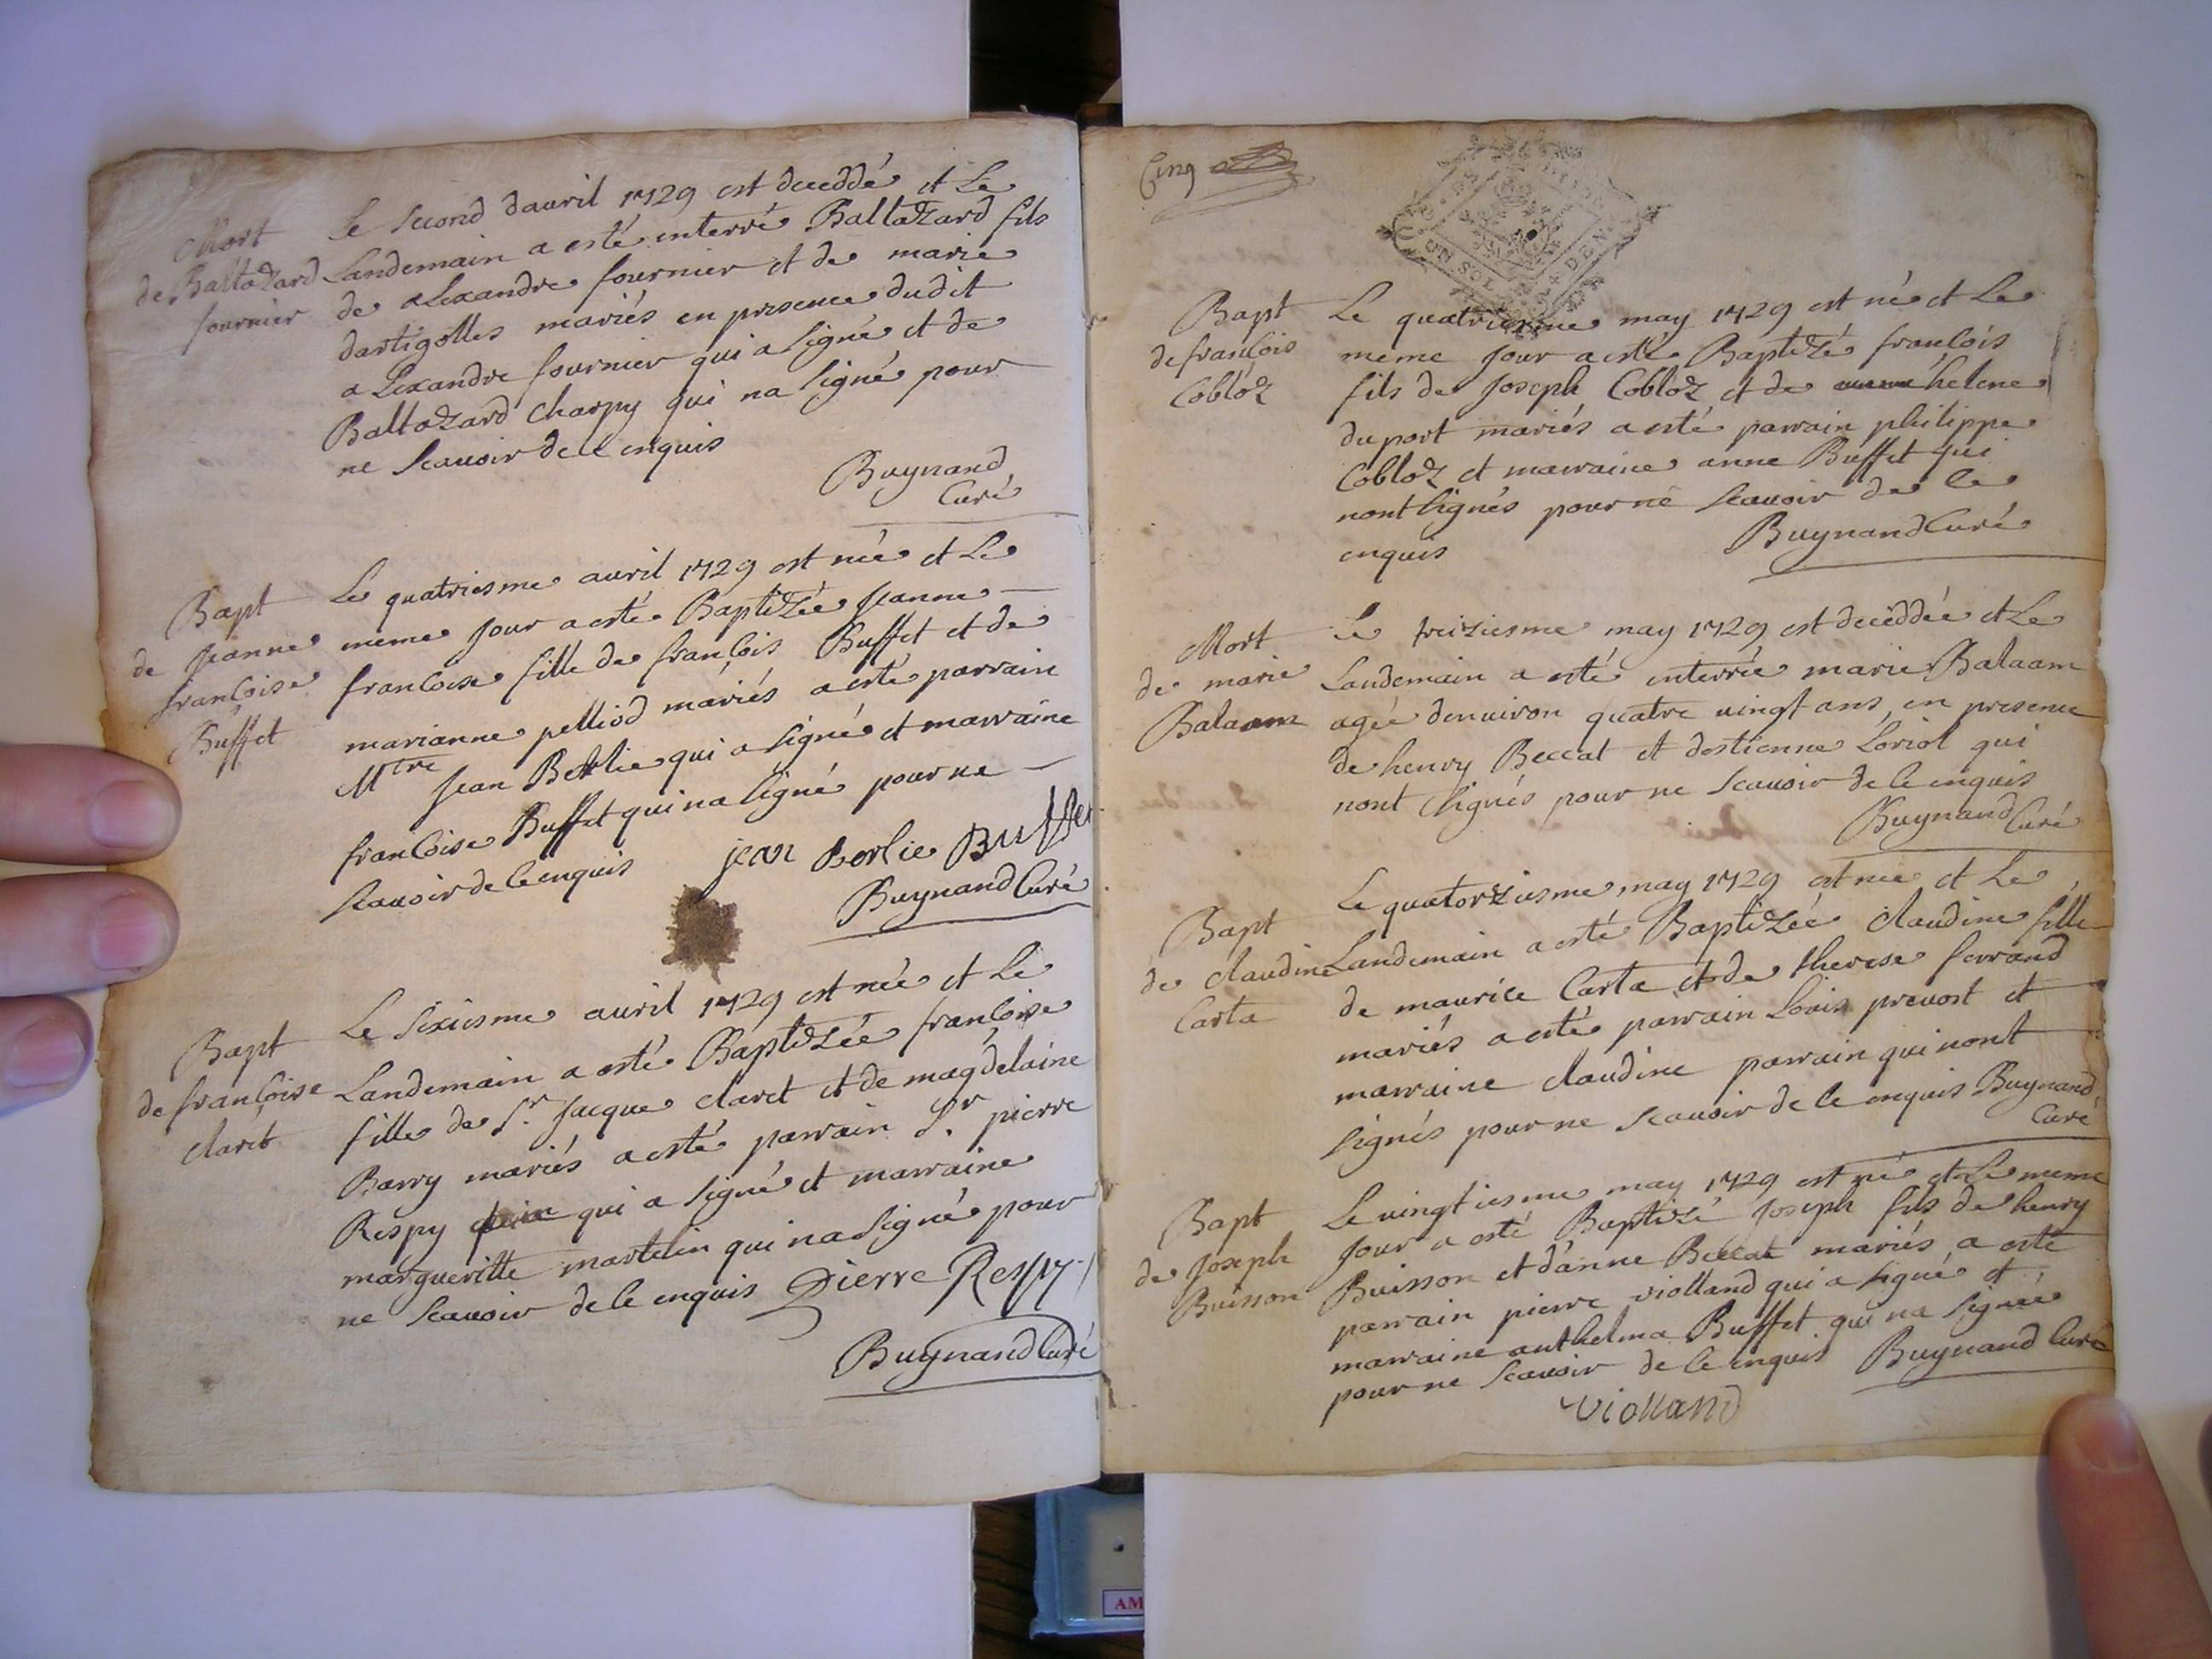 Mort
de Baltazard
fournier
Le second davril 1729 est deceddé et Le
Landemain a esté enterré Baltazard fils
de alexandre fournier et de marie
dartigolles mariés en presence dudit
alexandre fournier qui a signé et de
Baltazard Charpy qui na signé pour
ne scavoir de ce enquis
Buynand
Curé
Bapt
de Jeanne
françoise
Buffet
Le quatriesme avril 1729 est née et Le
meme Jour a esté Baptizée Jeanne
francoise fille de françois Buffet et de
marianne pelliod mariés a esté parrain
Mtre Jean Berlie qui a signé et marraine
francoise Buffet qui na signé pour ne
scavoir de ce enquis
jean Berlie Buffet
Buynand Curé
Bapt
de françoise
claret
Le sixiesme avril 1729 est née et Le
Landemain a esté Baptizée françoise
fille de Sr. Jacque claret et de magdelaine
Barry mariés a esté parrain Sr. pierre
Respy qui a signé et marraine
margueritte martelin qui na signé pour
ne scavoir de ce enquis
Pierre Respy
Buynand Curé
Cinq
UN SOL 4 DEN
Bapt
de françois
Cobloz
Le quatriesme may 1729 est né et Le
meme Jour a esté Baptizé françois
fils de Joseph Cobloz et de helene
duport mariés a esté parrain philippe
Cobloz et marraine anne Buffet qui
nont signés pour ne scavoir de ce
enquis
Buynand Curé
Mort
de marie
Balaam
Le treiziesme may 1729 est deceddée et Le
Landemain a esté enterrée marie Balaam
agée denviron quatre vingt ans en presence
de henry Beccat et destienne Loriol qui
nont signés pour ne scavoir de ce enquis
Buynand Curé
Bapt
de claudine
Carta
Le quatorziesme may 1729 est née et Le
Landemain a esté Baptizée claudine fille
de maurice Carta et de therese ferrand
mariés a esté parrain Louis prevost et
marraine claudine parrain qui nont
signés pour ne scavoir de ce enquis Buynand
Curé
Bapt
de Joseph
Buisson
Le vingtiesme may 1729 est né et Le meme
Jour a esté Baptizé Joseph fils de henry
Buisson et d'anne Beccat mariés a esté
parrain pierre violland qui a signé et
marraine anthelma Buffet qui na signée
pour ne scavoir de ce enquis Buynand Curé
Violland
AM